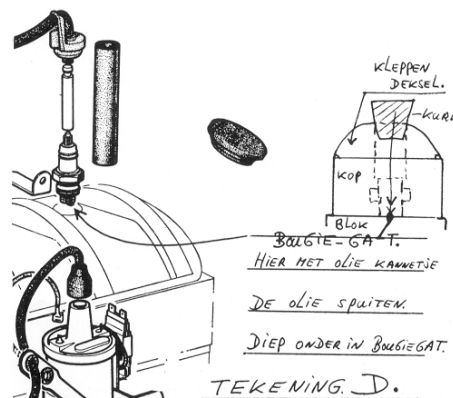 KLEPPEN
DEKSEL.
KURK
KOP
BLOK
BOUGIE-GAT.
HIER MET OLIE KANNETJE
DE OLIE SPUITEN.
DIEP ONDER IN BOUGIEGAT.
TEKENING. D.